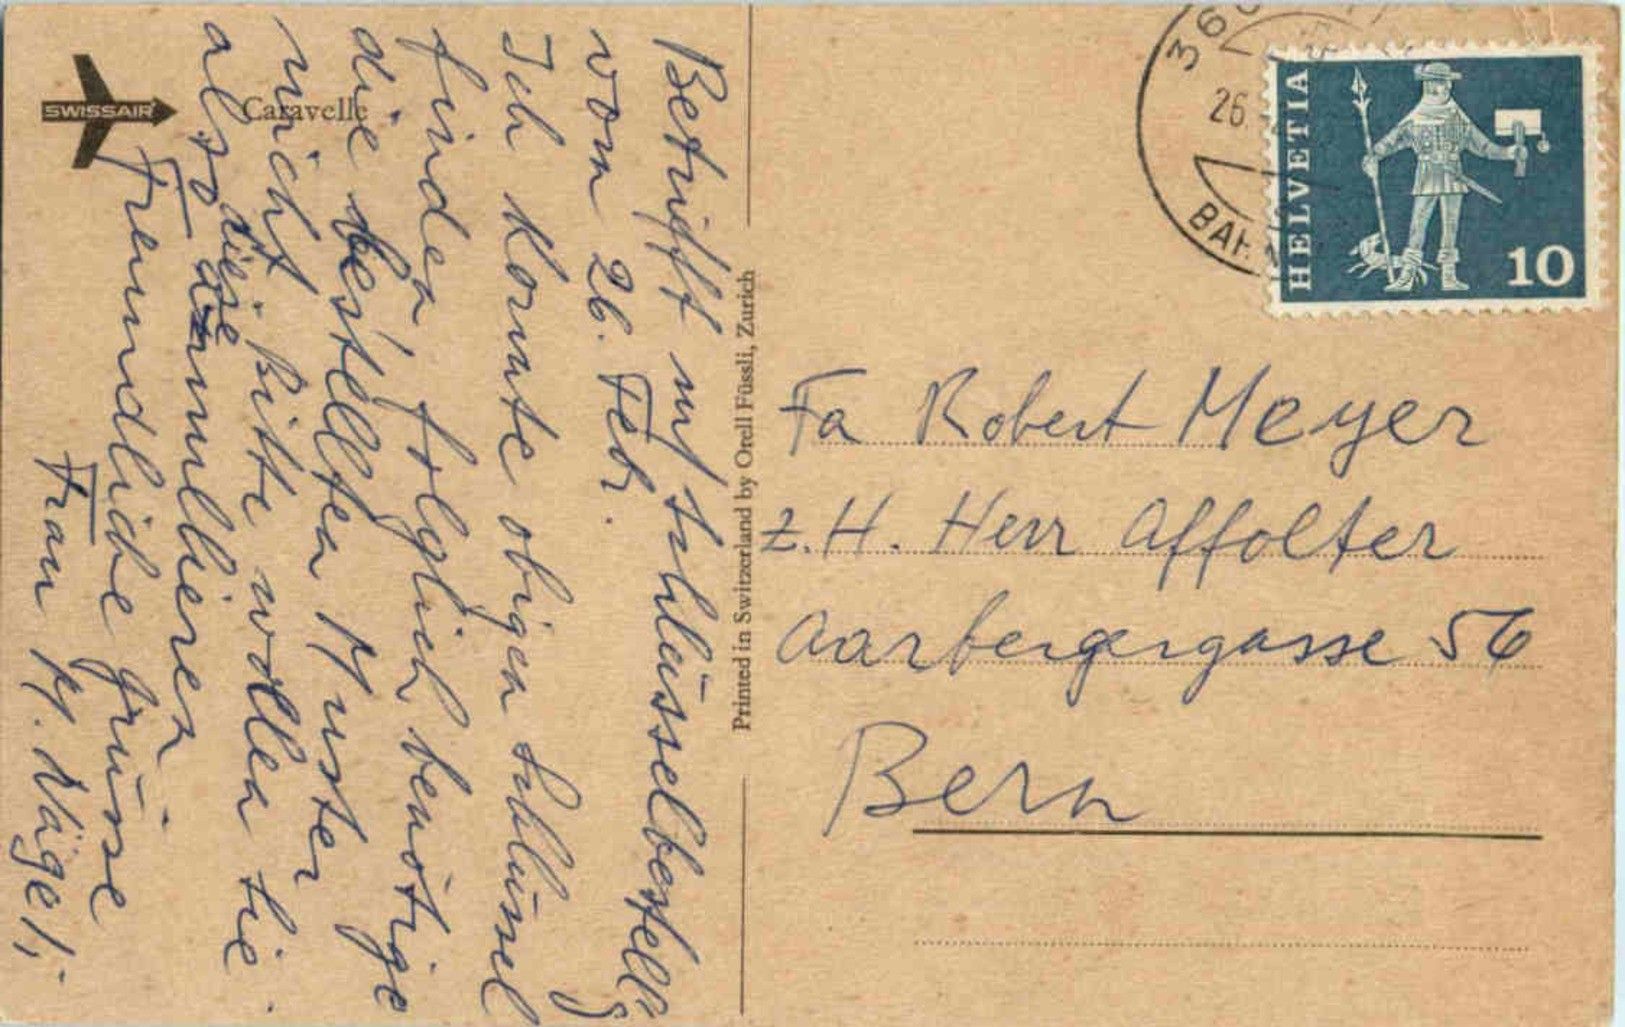 SWISSAIR
Caravelle
Betrifft m/ Schlüsselbestellg
vom 26. Febr.
Ich konnte obigen Schlüssel
finden, folglich benötige
die bestellten Muster
nicht. Bitte wollen Sie
also diese annullieren
Freundliche Grüsse
Frau M. Nägeli
Printed in Switzerland by Orell Füssli, Zurich
26.
BAH
HELVETIA
10
Fa Robert Meyer
z.H. Herr Affolter
Aarbergergasse 56
Bern